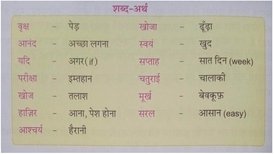 शब्द-अर्थ
वृक्ष - पेड़ खोजा - ढूँढ़ा
आनंद - अच्छा लगना स्वयं - खुद
यदि - अगर (if) सप्ताह - सात दिन (week)
परीक्षा - इम्तहान चतुराई - चालाकी
खोज - तलाश मूर्ख - बेवकूफ़
हाज़िर - आना, पेश होना सरल - आसान (easy)
आश्चर्य - हैरानी